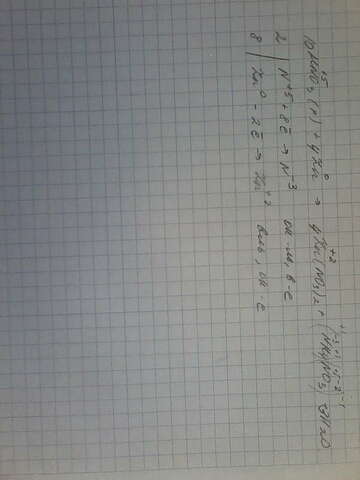 10HNO₃(р) + 4Zn⁰ → 4Zn⁺²(NO₃)₂ + (NH₄NO₃) + 3H₂O
2 | N⁺⁵ + 8ē → N⁻³ ок-ль, в-е
8 | Zn⁰ - 2ē → Zn⁺² в-ль, ок-е